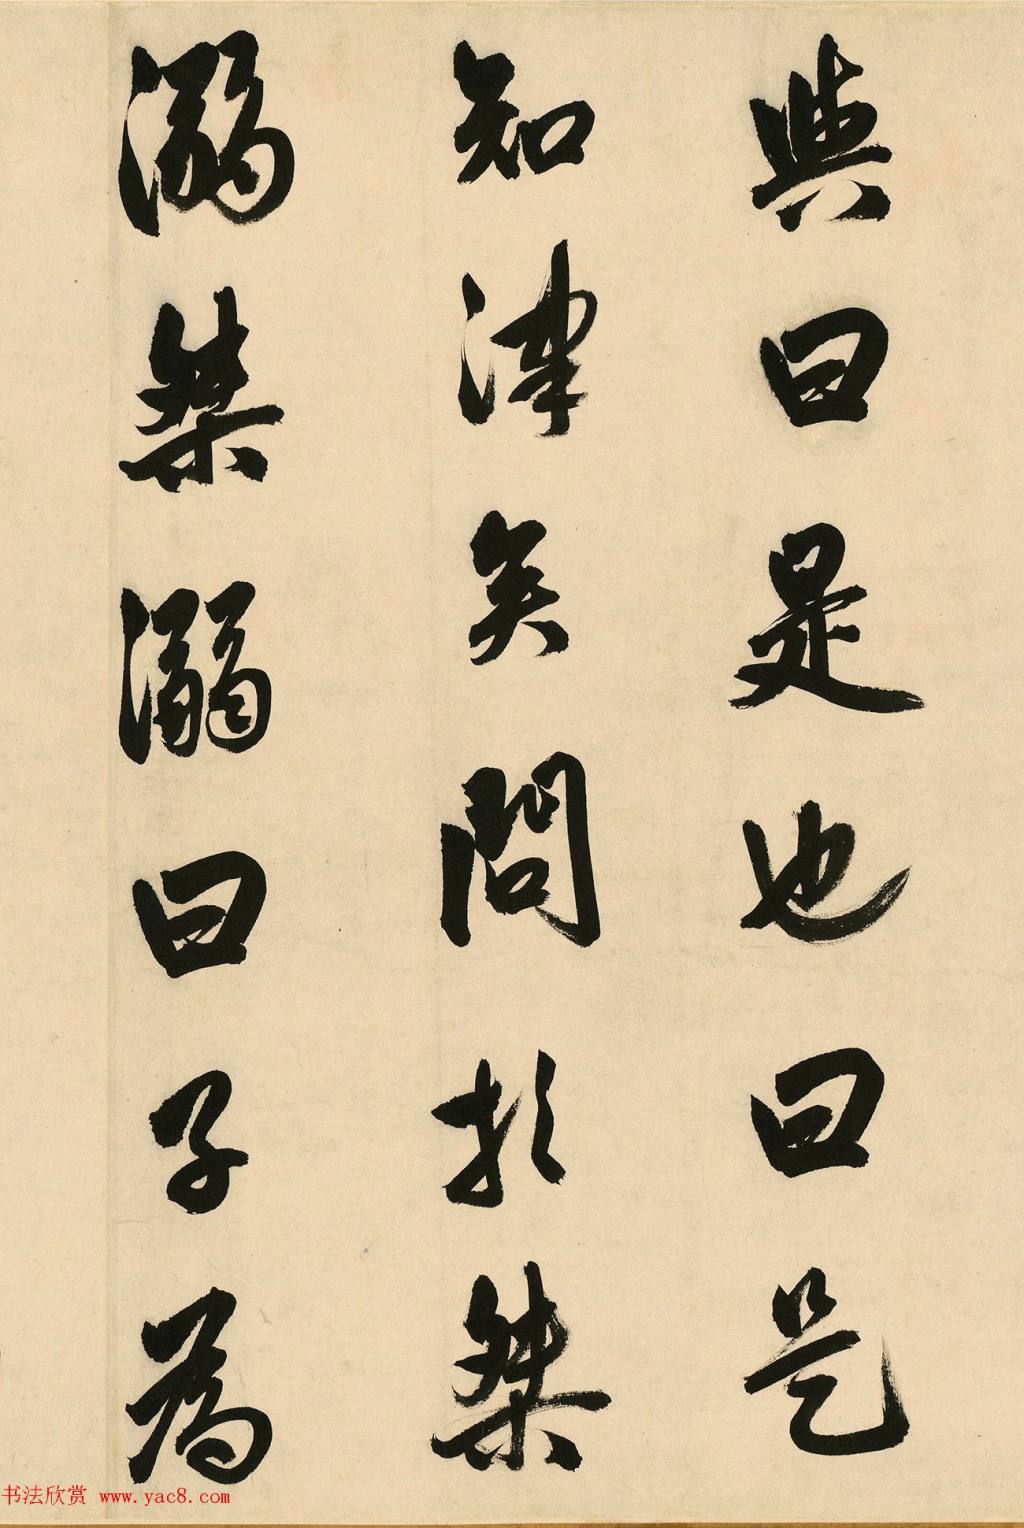 與曰是也曰是
知津矣問於桀
溺桀溺曰子為
书法欣赏 www.yac8.com